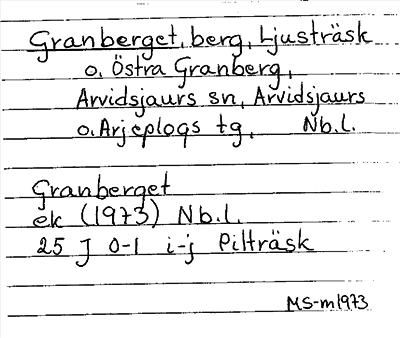 Granberget, berg, Ljusträsk
o. Östra Granberg,
Arvidsjaurs sn, Arvidsjaurs
o. Arjeplogs tg, Nb.l.
Granberget
ek (1973) Nb.l.
25 J 0-1 i-j Pilträsk
MS-m1973